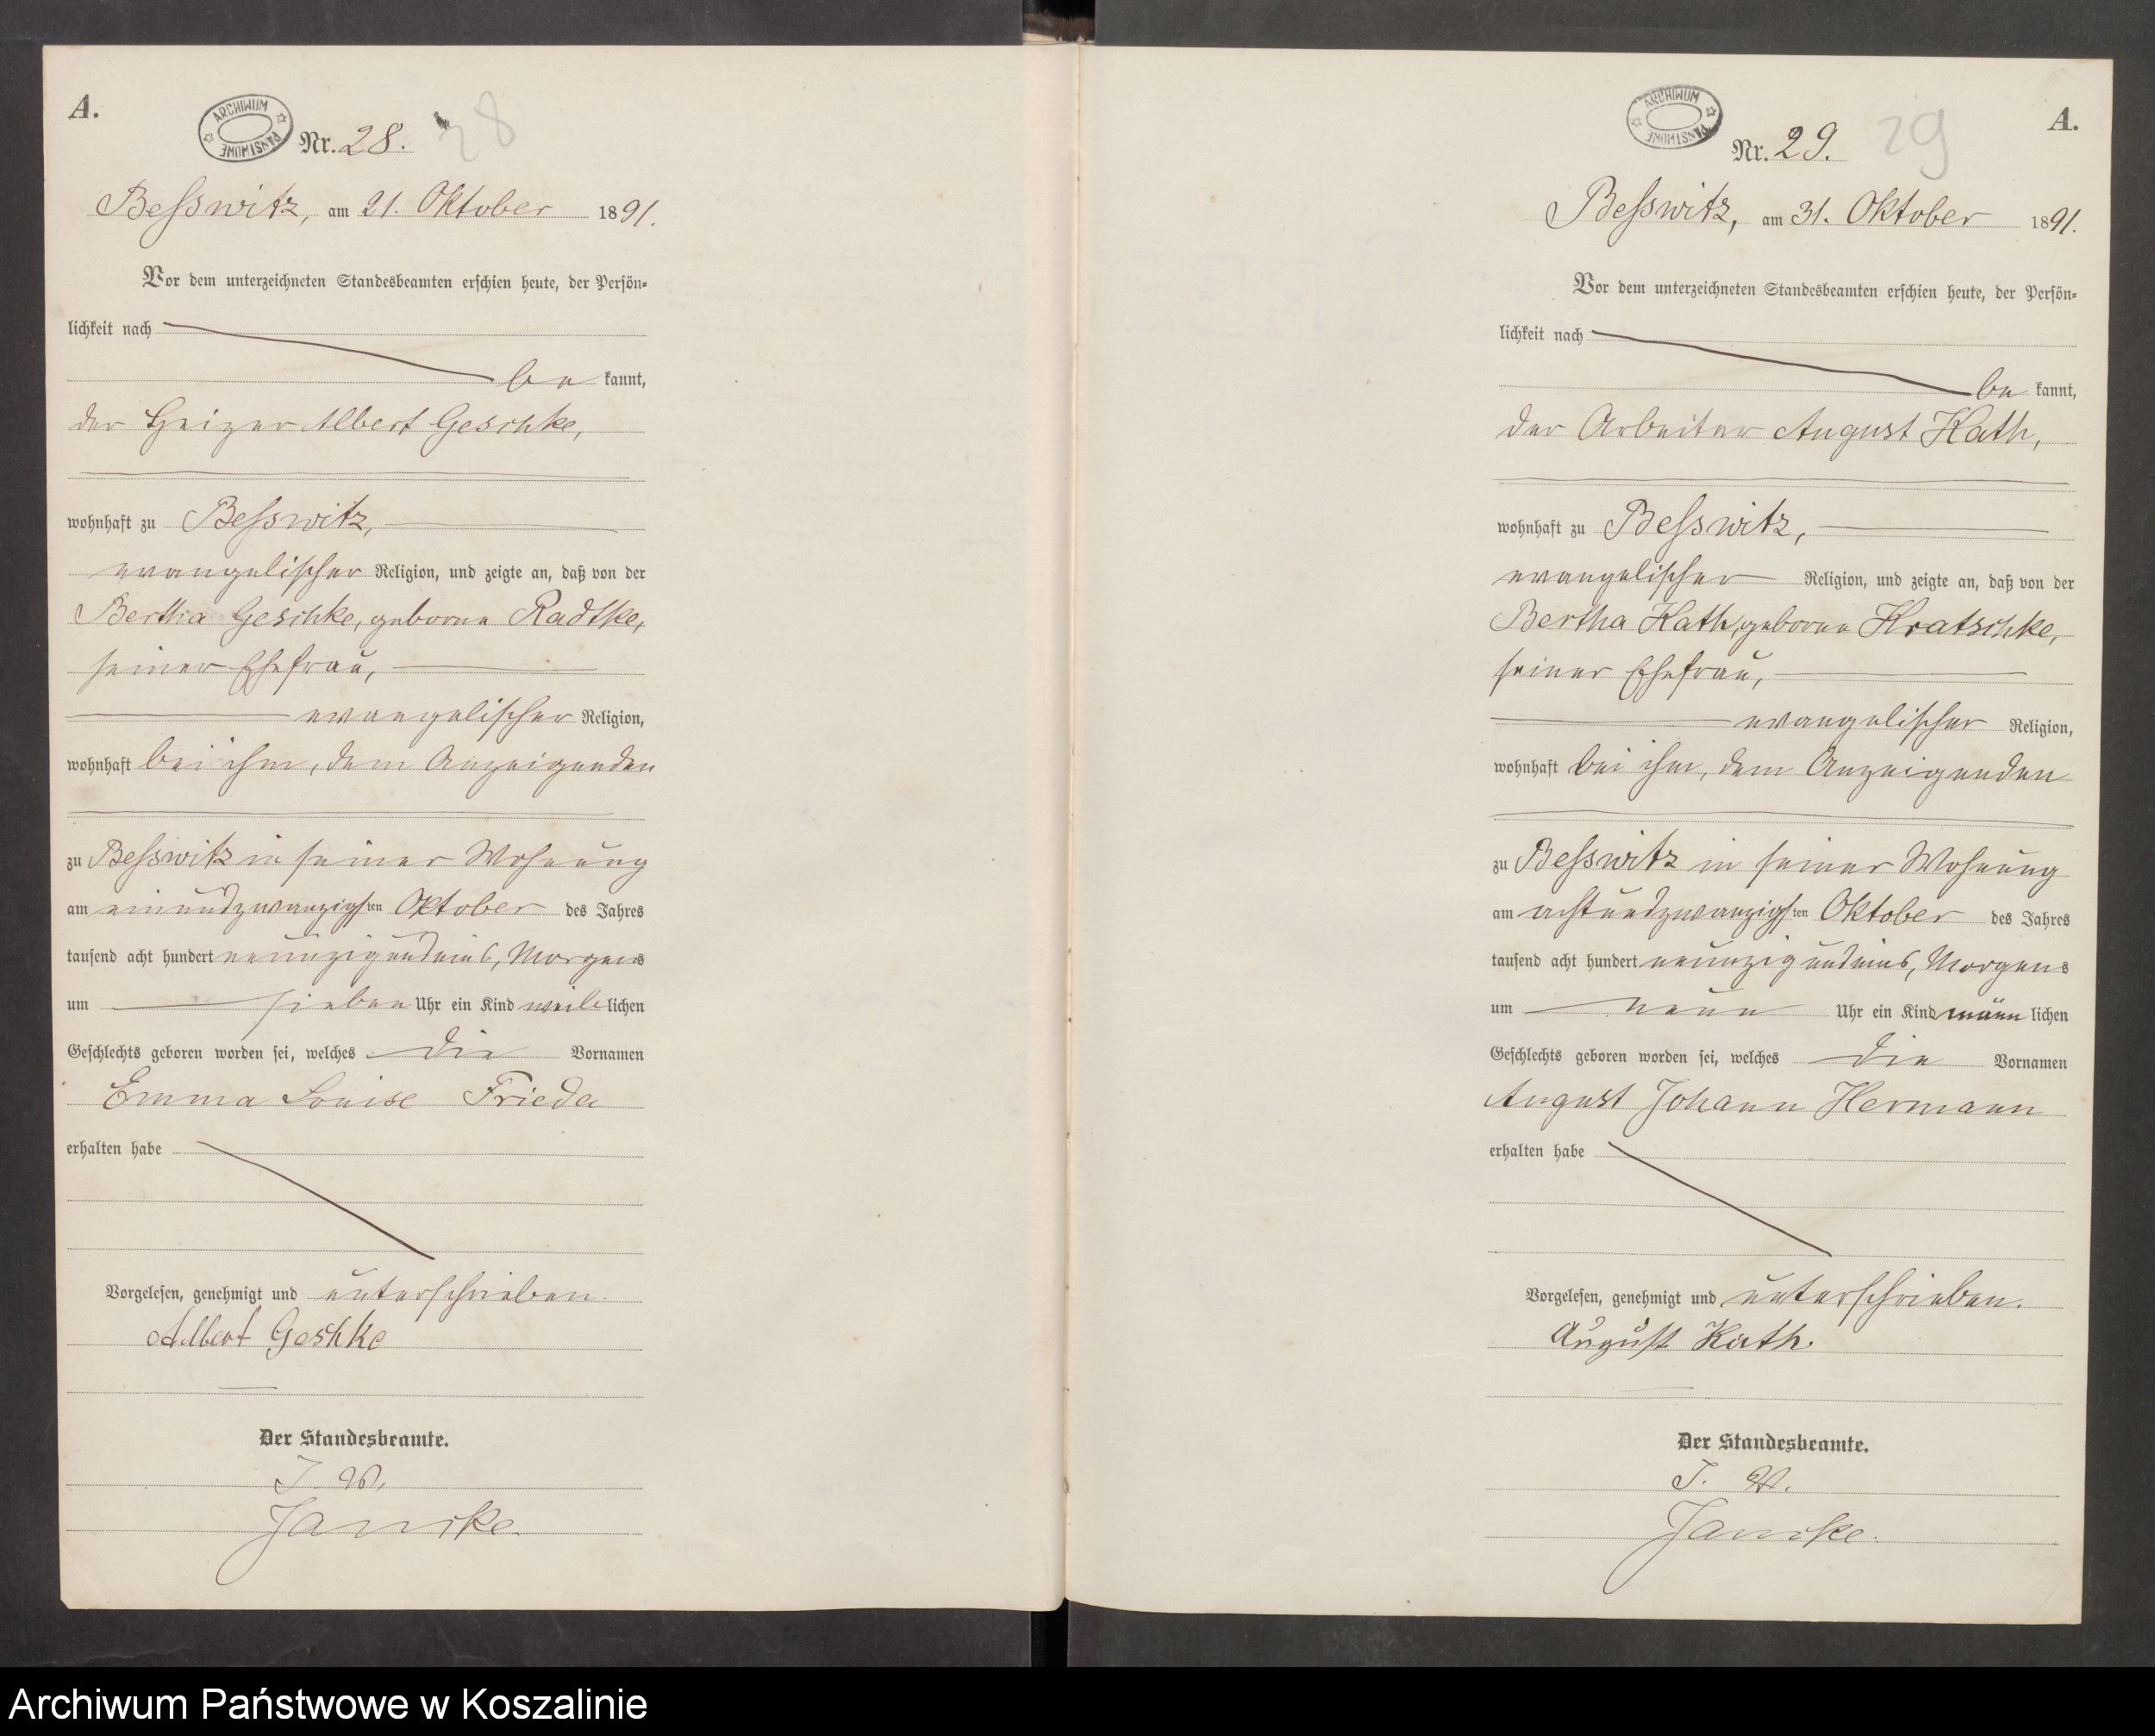 A.
ARCHIWUM PAŃSTWOWE
Nr. 28. 28
Beßwitz, am 21. Oktober 1891.
Vor dem unterzeichneten Standesbeamten erschien heute, der Persön-
lichkeit nach
be kannt,
der Heizer Albert Geschke,
wohnhaft zu Beßwitz,
evangelischer Religion, und zeigte an, daß von der
Bertha Geschke, geborne Radtke,
seiner Ehefrau,
evangelischer Religion,
wohnhaft bei ihm, dem Anzeigenden
zu Beßwitz in seiner Wohnung
am einundzwanzigsten Oktober des Jahres
tausend acht hundert neunzig und eins, Morgens
um sieben Uhr ein Kind weib lichen
Geschlechts geboren worden sei, welches die Vornamen
Emma Louise Frieda
erhalten habe
Vorgelesen, genehmigt und unterschrieben.
Albert Geshke
Der Standesbeamte.
J. V.
Jancke.
A.
ARCHIWUM PAŃSTWOWE
Nr. 29. 29
Beßwitz, am 31. Oktober 1891.
Vor dem unterzeichneten Standesbeamten erschien heute, der Persön-
lichkeit nach
be kannt,
der Arbeiter August Kath,
wohnhaft zu Beßwitz,
evangelischer Religion, und zeigte an, daß von der
Bertha Kath, geborne Kratschke,
seiner Ehefrau,
evangelischer Religion,
wohnhaft bei ihm, dem Anzeigenden
zu Beßwitz in seiner Wohnung
am achtundzwanzigsten Oktober des Jahres
tausend acht hundert neunzig und eins, Morgens
um neun Uhr ein Kind männ lichen
Geschlechts geboren worden sei, welches die Vornamen
August Johann Hermann
erhalten habe
Vorgelesen, genehmigt und unterschrieben.
August Kath.
Der Standesbeamte.
J. V.
Jancke.
Archiwum Państwowe w Koszalinie